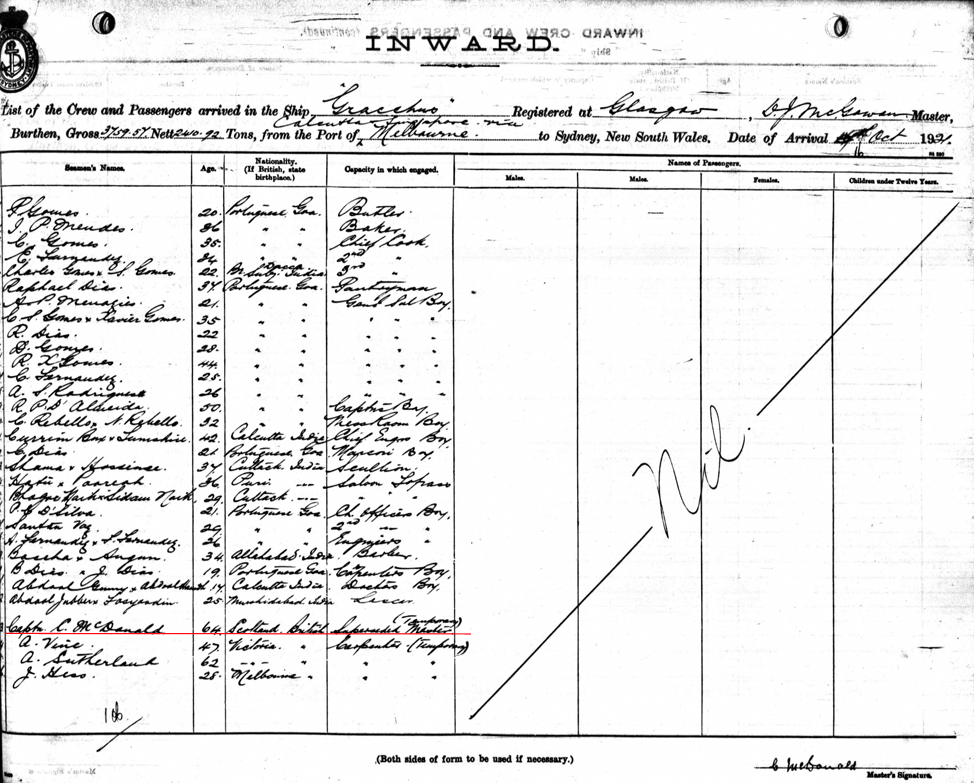 INWARD CREW AND PASSENGERS (continued)
INWARD.
List of the Crew and Passengers arrived in the Ship "Gracchus" Registered at Glasgow, D. J. McGowan Master,
Calcutta Singapore via
Burthen, Gross 3759.57 Nett 240.92 Tons, from the Port of Melbourne. to Sydney, New South Wales. Date of Arrival Oct 192
16
Seamen's Names. Age. Nationality. (If British, state birthplace.) Capacity in which engaged. Names of Passengers.
Males. Males. Females. Children under Twelve Years.
P Gomes. 20. Portuguese Goa. Butler.
J. P. Mendes. 36 " " Baker.
C. Gomes. 35. " " Chief Cook.
C. Fernandez. 34 " " 2nd "
Charles Gomes & S. Gomes. 22. Br. Subj. India 3rd "
Raphael Dias. 37 Portuguese Goa. Pantryman
A. P. Menazies. 21. " " Genl Sal Boy.
C S Gomes & Xavier Gomes. 35 " " " " "
R. Dias. 22 " " " " "
D. Gomes. 28. " " " " "
R X Gomes. 44. " " " " "
C. Fernandez. 25. " " " " "
A. S. Rodrigues 26 " " " " "
R P D'Almeida. 50. " " Captns Boy.
C. Rebello & N. Rebello. 32 " " Mess Room Boy.
Currim Box & 42. Calcutta India Chief Engrs Boy
C Dias. 21. Portuguese Goa Marconi Boy.
Shama & Hossinee. 37 Cuttack India Scullion.
36 Puri --- Saloon Topass
29. Cuttack ---
P. C D'Silva. 21. Portuguese Goa. Ch. Officers Boy.
Santan Vaz 29. " " 2nd -- "
H. Fernandez & S. Fernandez. 26 " " Engniers "
34. Allahabad India Barber.
B Dias & J. Dias. 19. Portuguese Goa. Carpenters Boy.
Abdool Gunny & 17. Calcutta India. Doctors Boy.
Abdool Jubber & 25. Murshidabad India
Captn. C. McDonald 64. Scotland British Superseded Master (Temporary)
A. Vine 47. Victoria. " Carpenter (Temporary)
A. Sutherland 62 --- " " "
J. Hess. 28. Melbourne " " "
Nil.
106
(Both sides of form to be used if necessary.)
C McDonald
Master's Signature.